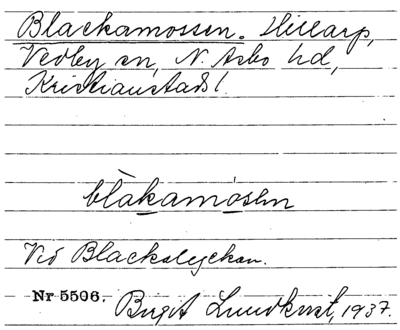 Blackamossen. Hillarp,
Vedby sn, N. Åsbo hd,
Kristianstads l.
blàkamósen
Vid Blackelyckan.
Nr 5506. Birgit Lundkvist, 1937.